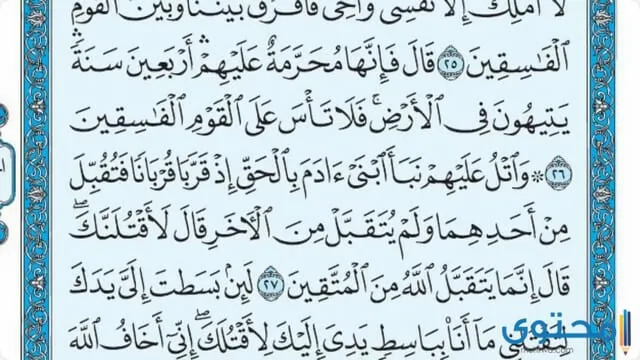 لَا أَمْلِكُ إِلَّا نَفْسِى وَأَخِى فَافْرُقْ بَيْنَنَا وَبَيْنَ الْقَوْمِ
الْفَاسِقِينَ ٢٥ قَالَ فَإِنَّهَا مُحَرَّمَةٌ عَلَيْهِمْ أَرْبَعِينَ سَنَةً
يَتِيهُونَ فِى الْأَرْضِ فَلَا تَأْسَ عَلَى الْقَوْمِ الْفَاسِقِينَ
٢٦ ۞ وَاتْلُ عَلَيْهِمْ نَبَأَ ابْنَىْ ءَادَمَ بِالْحَقِّ إِذْ قَرَّبَا قُرْبَانًا فَتُقُبِّلَ
مِنْ أَحَدِهِمَا وَلَمْ يُتَقَبَّلْ مِنَ الْآخَرِ قَالَ لَأَقْتُلَنَّكَ
قَالَ إِنَّمَا يَتَقَبَّلُ اللَّهُ مِنَ الْمُتَّقِينَ ٢٧ لَئِنْ بَسَطتَ إِلَىَّ يَدَكَ
لِتَقْتُلَنِى مَا أَنَا بِبَاسِطٍ يَدِىَ إِلَيْكَ لِأَقْتُلَكَ إِنِّى أَخَافُ اللَّهَ
محتوى